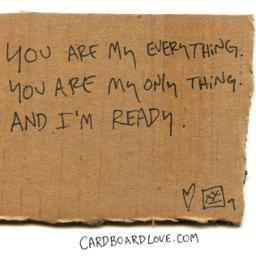 YOU ARE MY EVERYTHING.
YOU ARE MY ONLY THING.
AND I'M READY.
CARDBOARDLOVE.COM